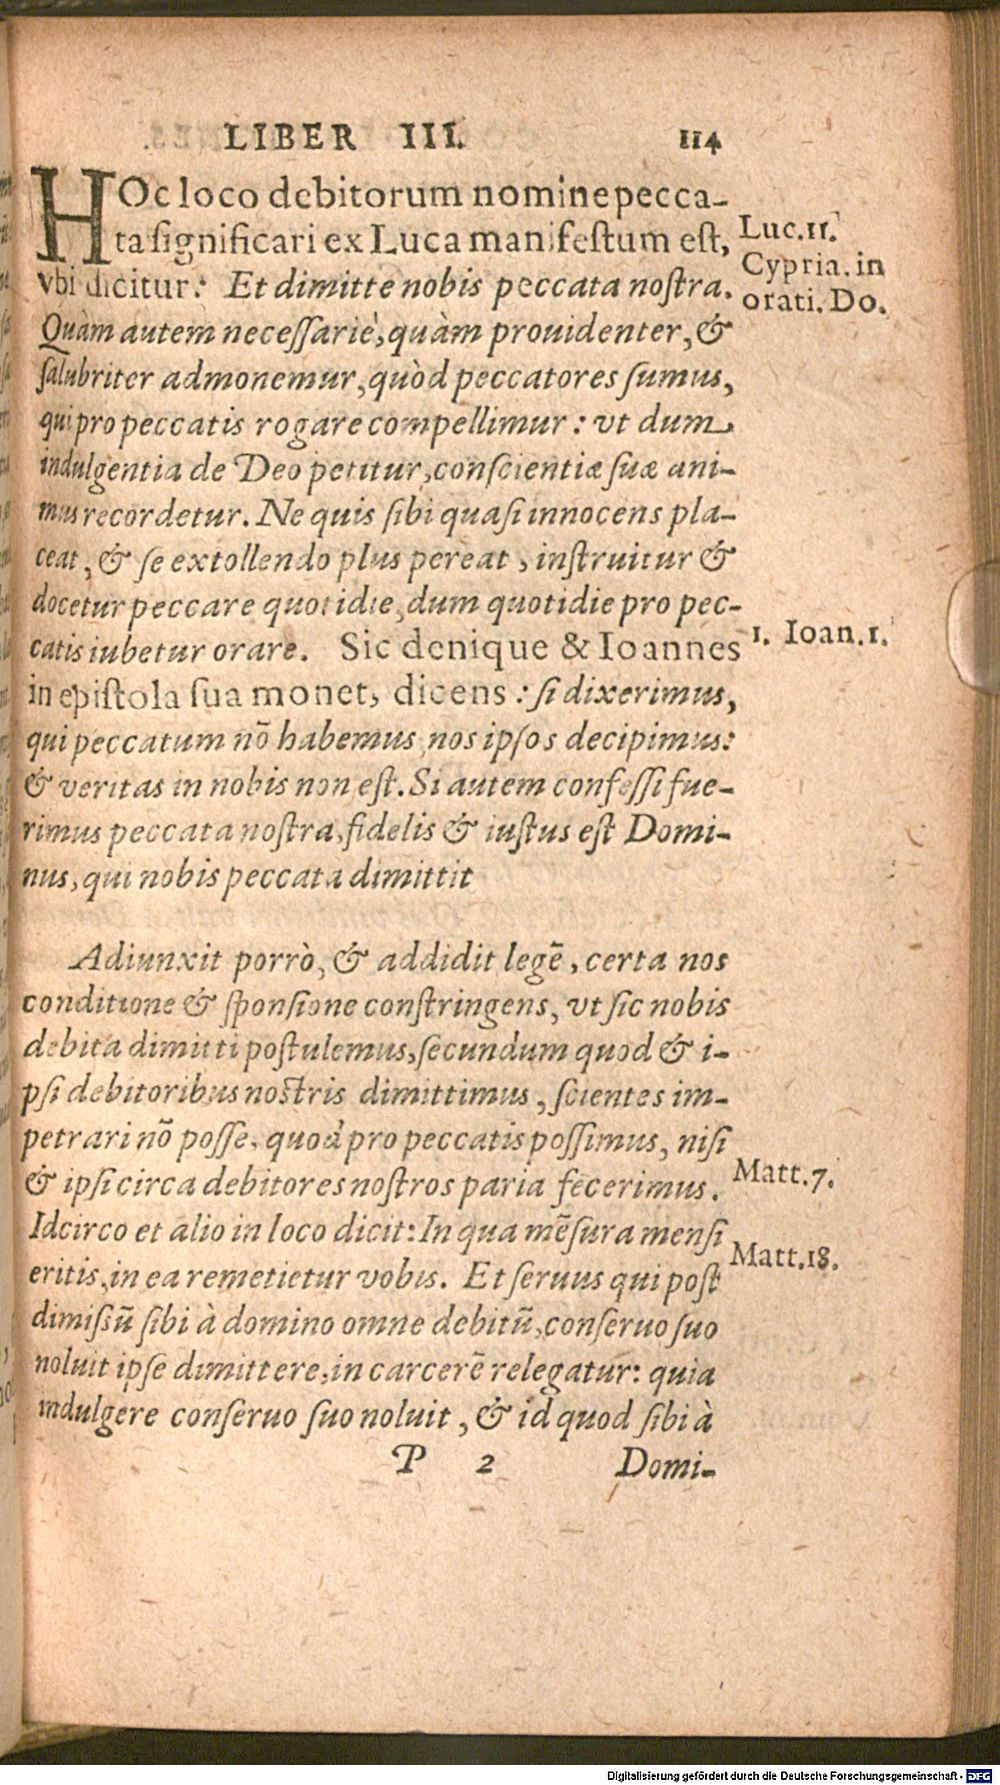 LIBER III. 114
HOc loco debitorum nomine pecca-
ta ſignificari ex Luca manifeſtum eſt,
Luc.11.
vbi dicitur: Et dimitte nobis peccata noſtra.
Cypria. in
orati. Do.
Quàm autem neceſſariè, quàm prouidenter, &
ſalubriter admonemur, quòd peccatores ſumus,
qui pro peccatis rogare compellimur: vt dum
indulgentia de Deo petitur, conſcientiæ ſuæ ani-
mus recordetur. Ne quis ſibi quaſi innocens pla-
ceat, & ſe extollendo plus pereat, inſtruitur &
docetur peccare quotidie, dum quotidie pro pec-
catis iubetur orare. Sic denique & Ioannes
1. Ioan.1.
in epiſtola ſua monet, dicens: ſi dixerimus,
qui peccatum nõ habemus, nos ipſos decipimus:
& veritas in nobis non eſt. Si autem confeſſi fue-
rimus peccata noſtra, fidelis & iuſtus eſt Domi-
nus, qui nobis peccata dimittit
Adiunxit porrò, & addidit legẽ, certa nos
conditione & ſponſione conſtringens, vt ſic nobis
debita dimitti poſtulemus, ſecundum quod & i-
pſi debitoribus noſtris dimittimus, ſcientes im-
petrari nõ poſſe, quod pro peccatis poſſimus, niſi
& ipſi circa debitores noſtros paria fecerimus.
Matt.7.
Idcirco et alio in loco dicit: In qua mẽſura menſi
eritis, in ea remetietur vobis. Et ſeruus qui poſt
Matt.18.
dimiſſũ ſibi à domino omne debitũ, conſeruo ſuo
noluit ipſe dimittere, in carcerẽ relegatur: quia
indulgere conſeruo ſuo noluit, & id quod ſibi à
P 2 Domi-
Digitalisierung gefördert durch die Deutsche Forschungsgemeinschaft - DFG